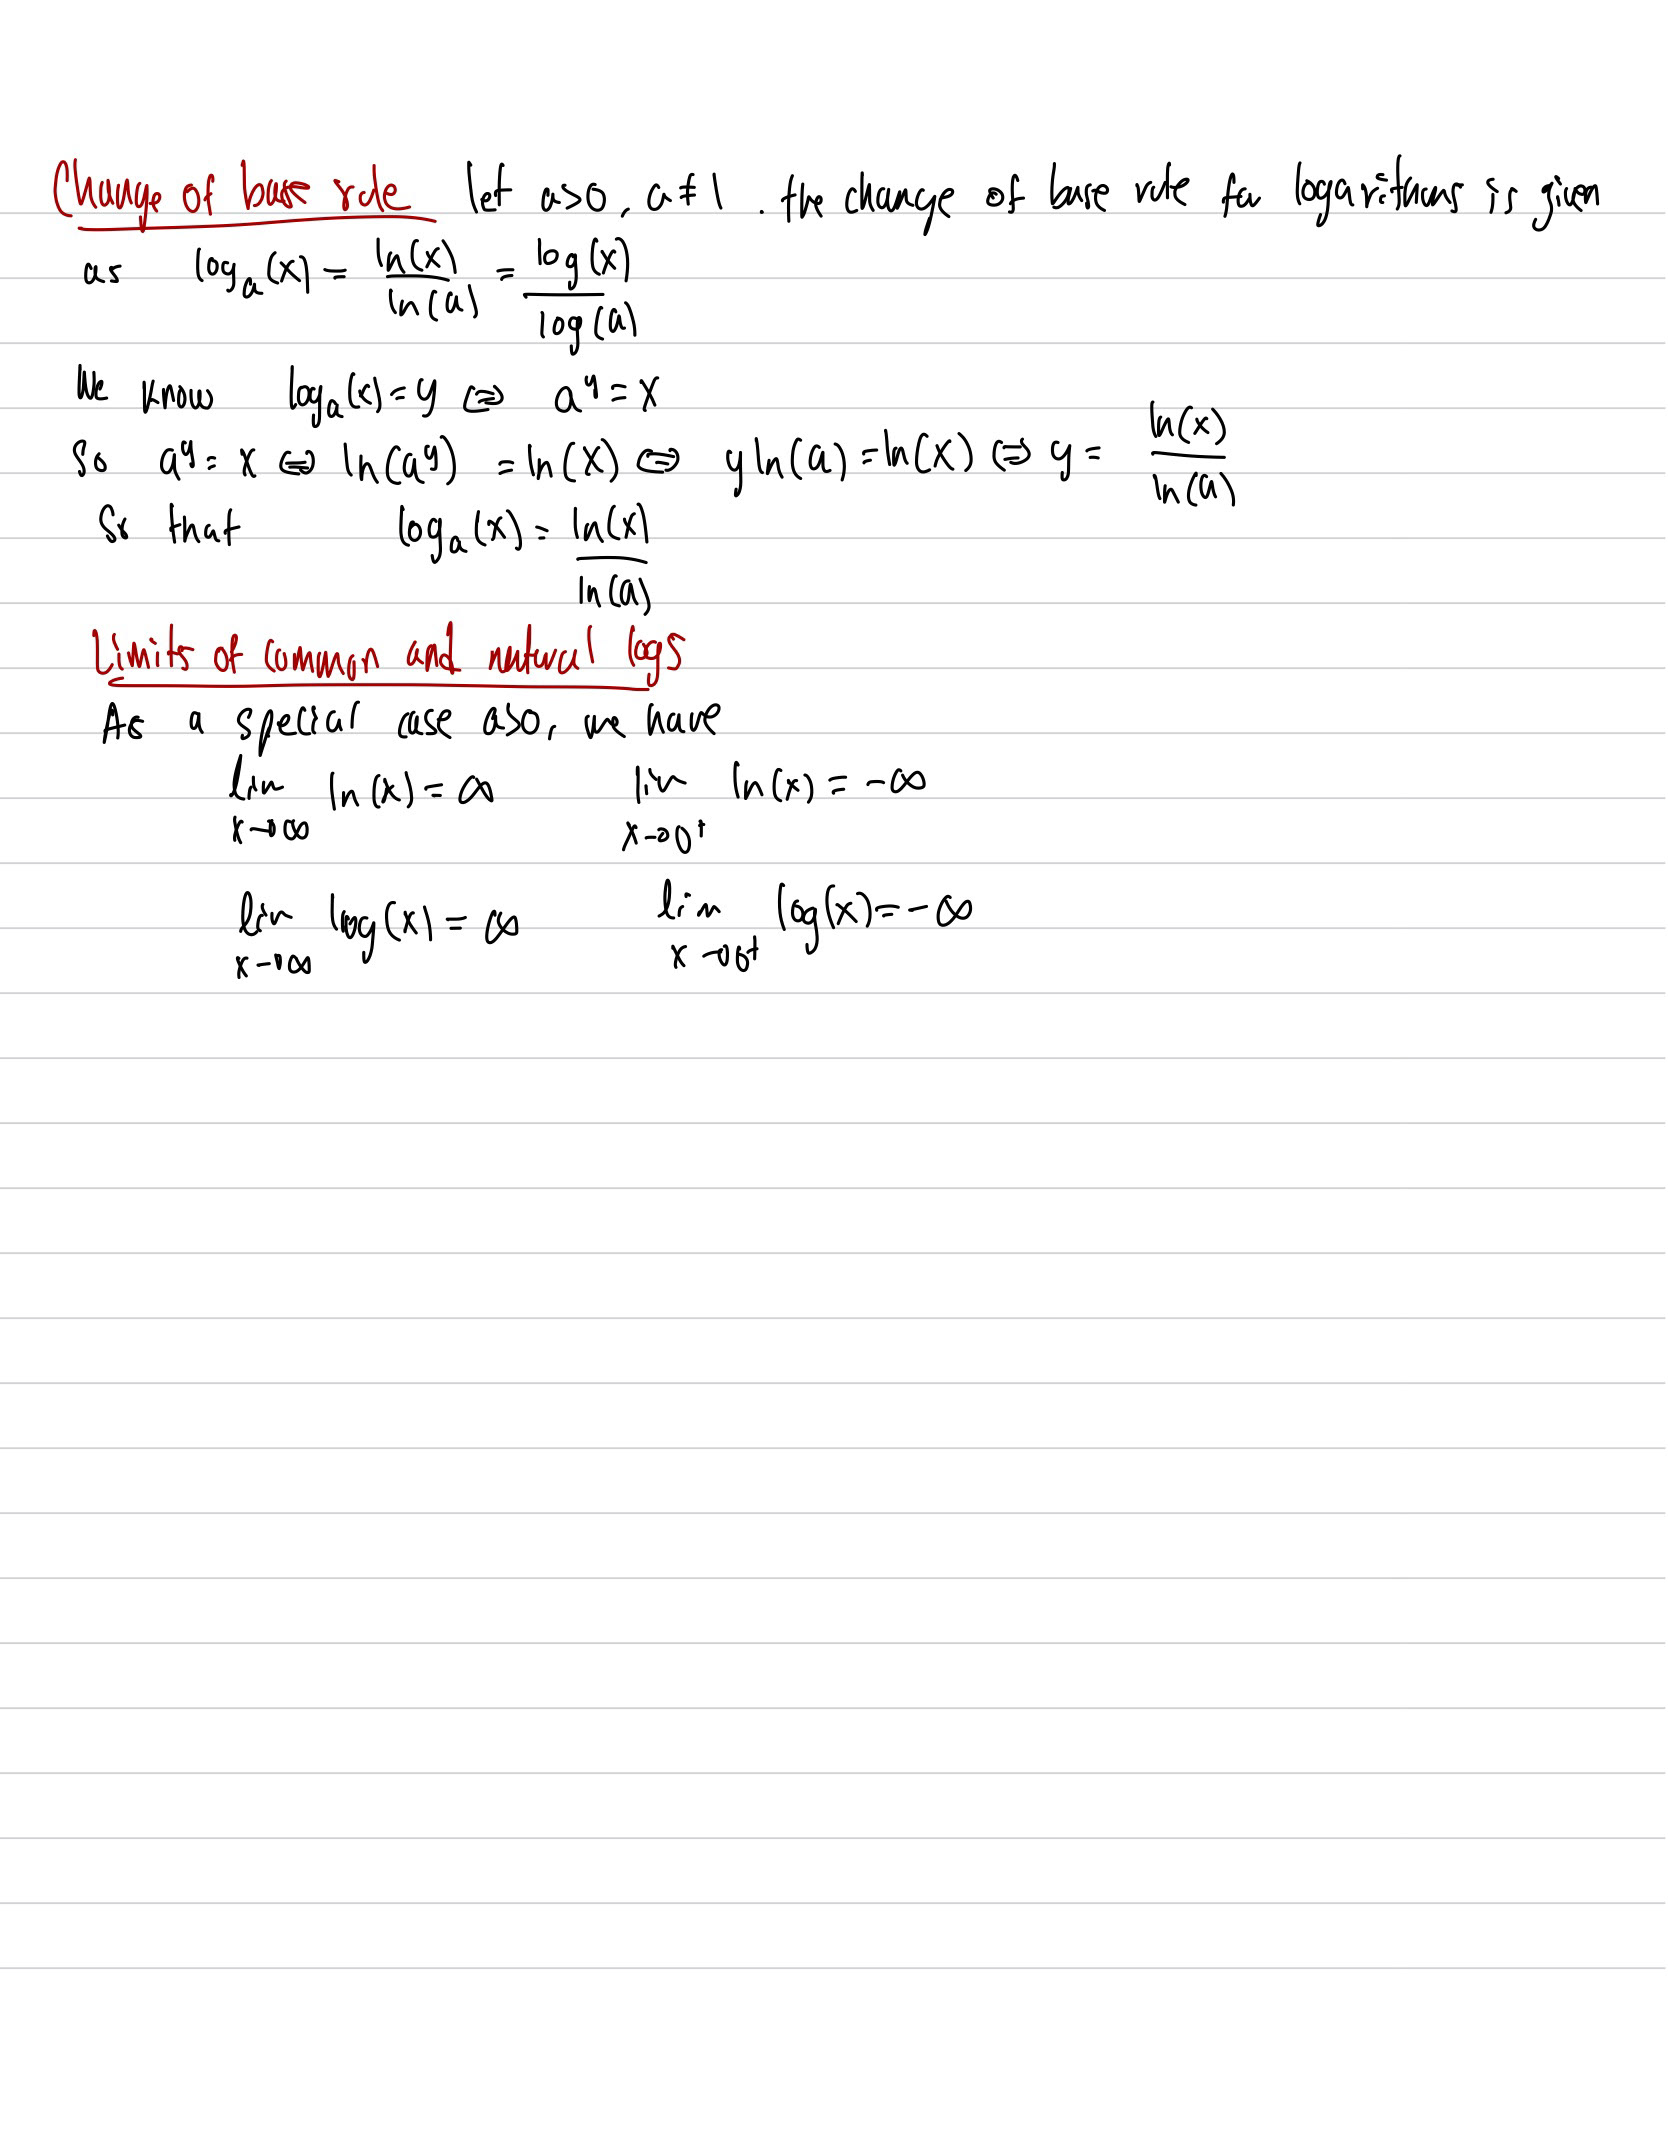 Change of base rule Let a>0, a≠1. the change of base rule for logarithms is given
as log_a(x) = ln(x)/ln(a) = log(x)/log(a)
We know log_a(x)=y ⇔ a^y = x
So a^y = x ⇔ ln(a^y) = ln(x) ⇔ y ln(a) = ln(x) ⇔ y = ln(x)/ln(a)
So that log_a(x) = ln(x)/ln(a)
Limits of common and natural logs
As a special case a>0, we have
lim x→∞ ln(x) = ∞ lim x→0⁺ ln(x) = -∞
lim x→∞ log(x) = ∞ lim x→0⁺ log(x) = -∞